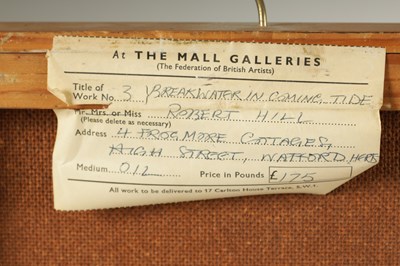 At THE MALL GALLERIES
(The Federation of British Artists)
Title of
Work No. 3 BREAKWATER IN COMING TIDE
Mr. Mrs. or Miss ROBERT HILL
(Please delete as necessary)
Address 4 FROGMORE COTTAGES,
HIGH STREET, WATFORD HERTS
Medium OIL Price in Pounds £175
All work to be delivered to 17 Carlton House Terrace, S.W.1